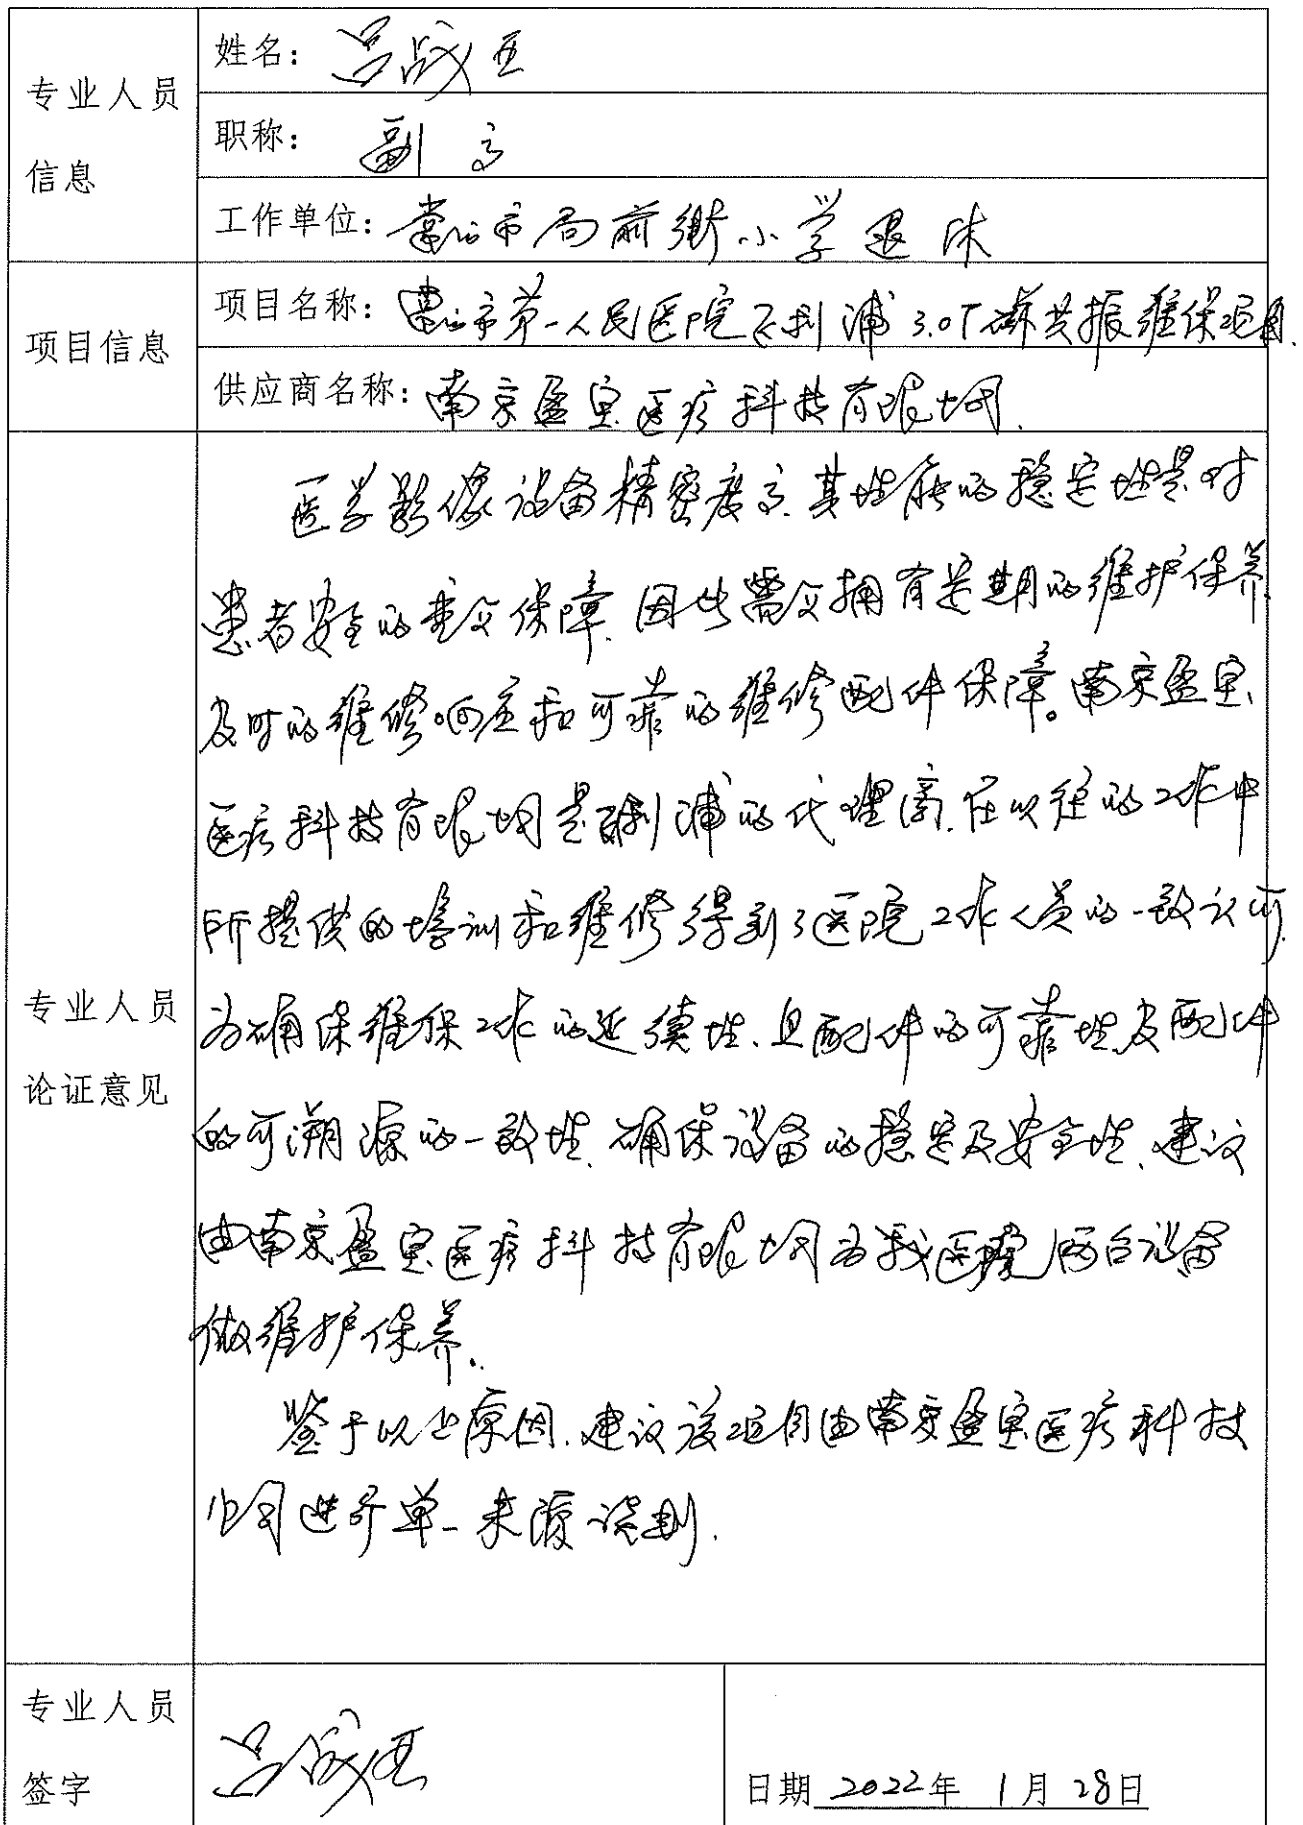 专业人员
信息
姓名：吕战亚
职称：副高
工作单位：常州市局前街小学退休
项目信息
项目名称：常州市第一人民医院飞利浦3.0T磁共振维保项目.
供应商名称：南京盈宝医疗科技有限公司.
专业人员
论证意见
医学影像设备精密度高.其性能的稳定性是对
患者安全的重要保障.因此需要拥有定期的维护保养.
及时的维修响应和可靠的维修配件保障。南京盈宝
医疗科技有限公司是飞利浦的代理商.在以往的工作中
所提供的培训和维修得到了医院工作人员的一致认可.
为确保维保工作的延续性、且配件的可靠性及配件
的可溯源的一致性.确保设备的稳定及安全性.建议
由南京盈宝医疗科技有限公司为我医院两台设备
做维护保养.
鉴于以上原因.建议该项目由南京盈宝医疗科技
公司进行单一来源谈判.
专业人员
签字
日期 2022年 1月 28日